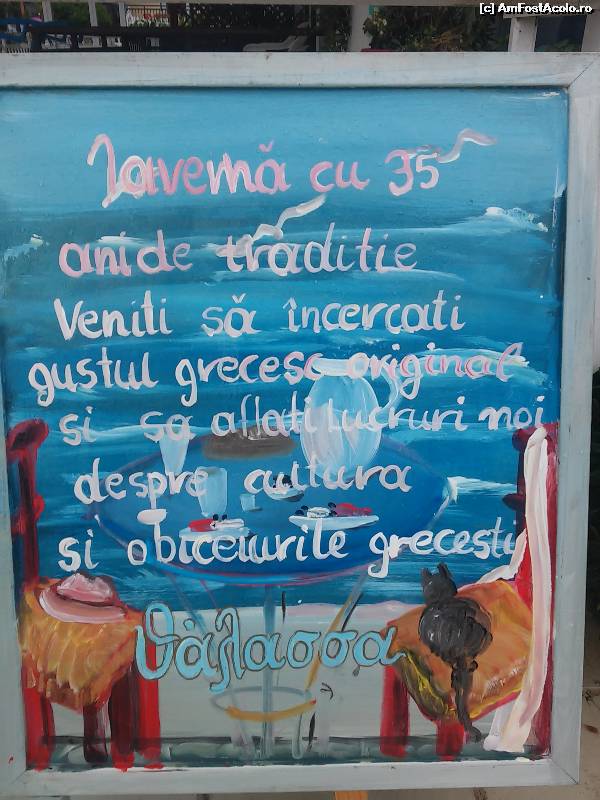 [c] AmFostAcolo.ro
Tavemă cu 35
ani de traditie
Veniti să încercati
gustul grecesc original
si sa aflati lucruri noi
despre cultura
si obiceiurile grecesti
θάλασσα